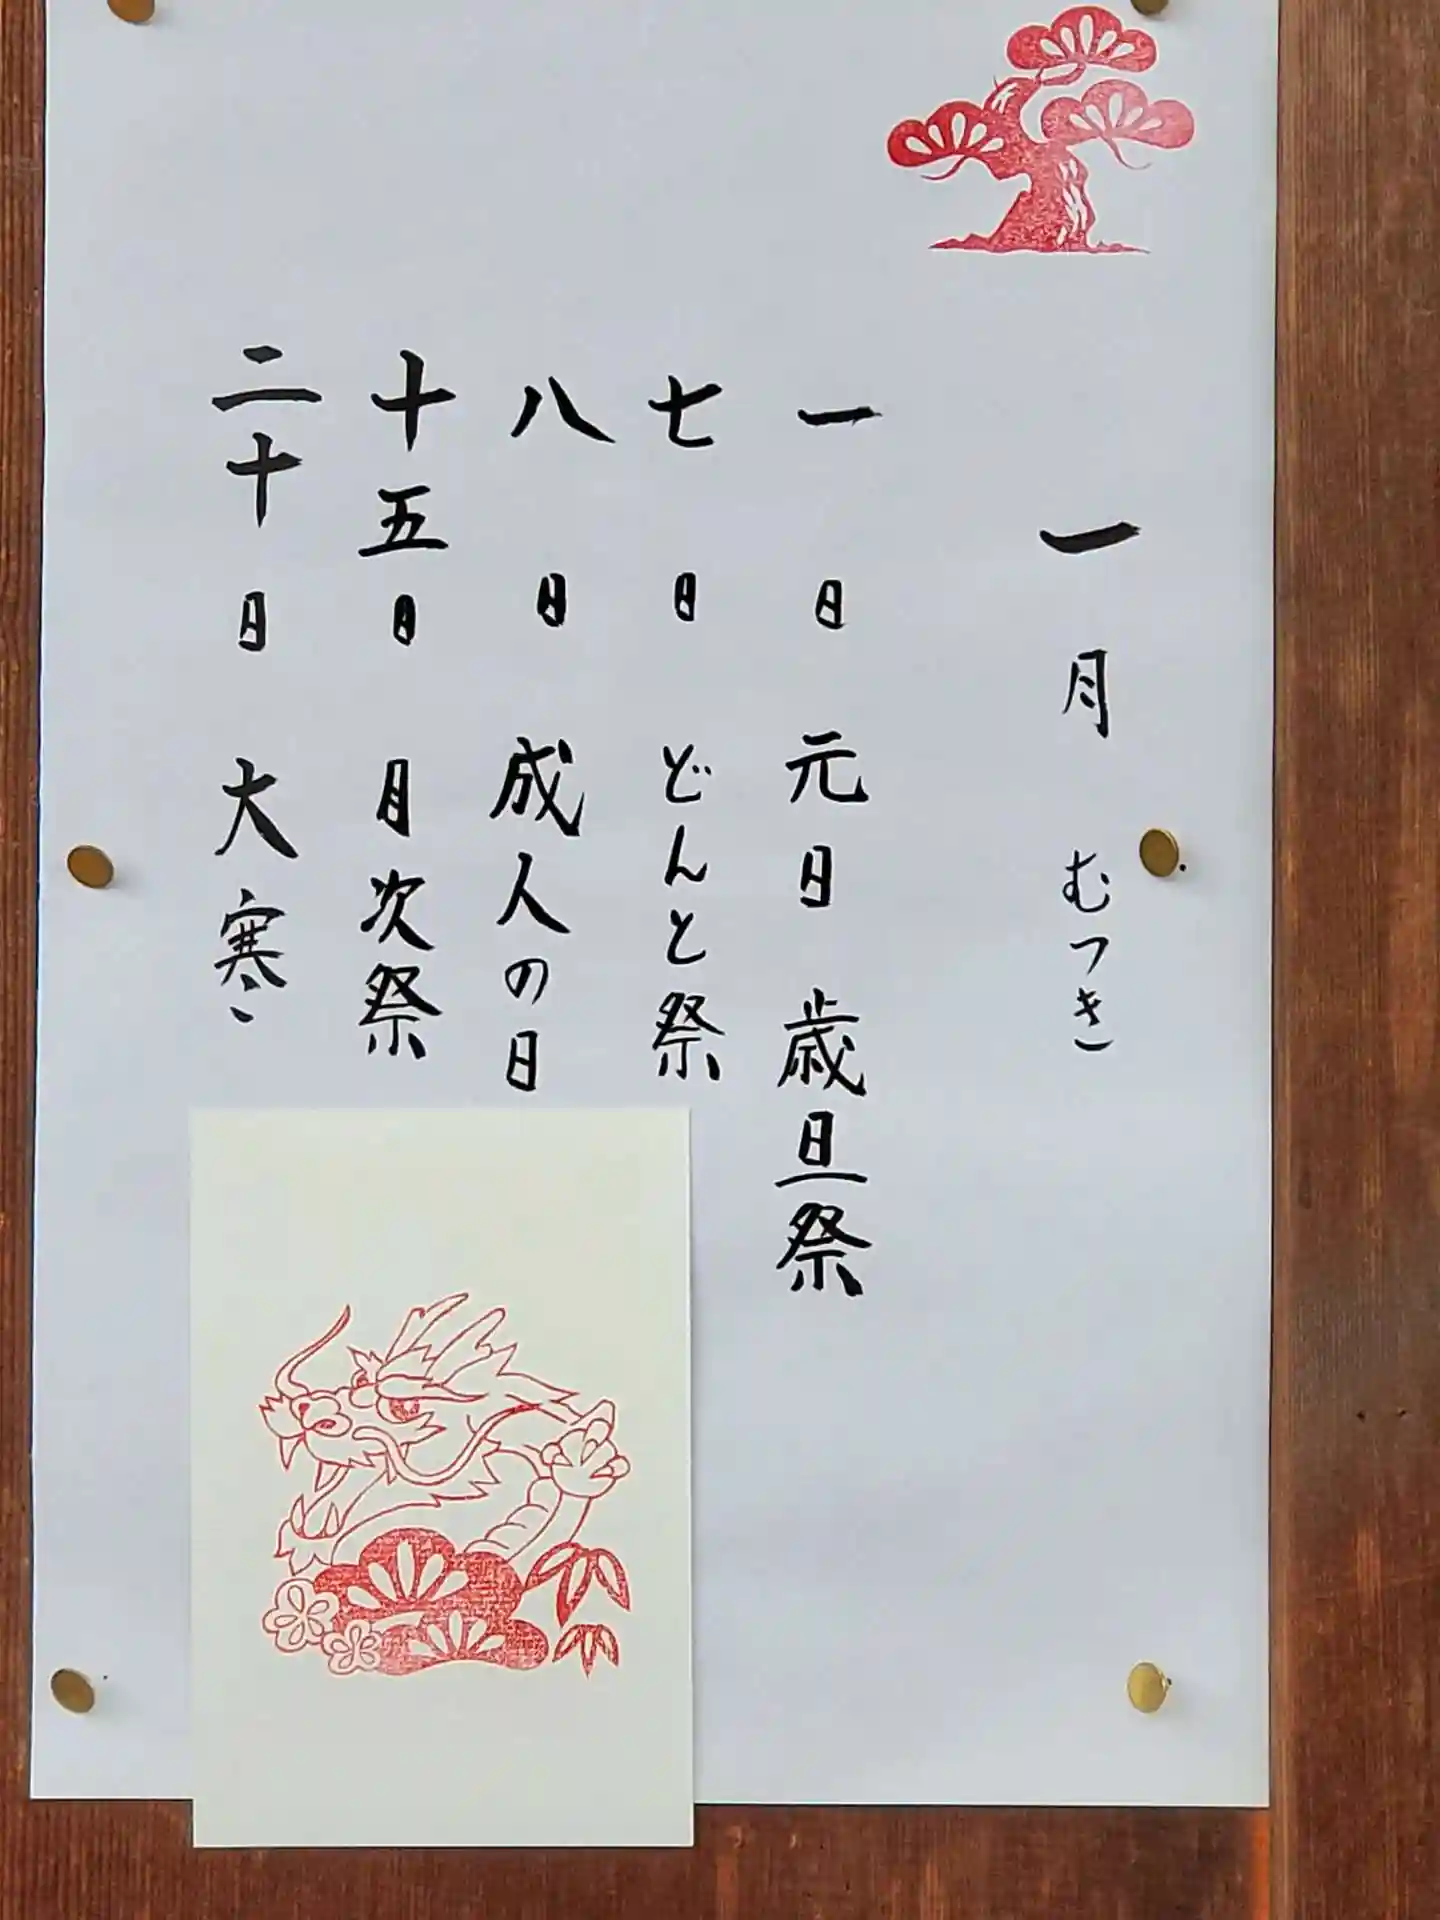 一月 むつき
一日 元日 歳旦祭
七日 どんと祭
八日 成人の日
十五日 月次祭
二十日 大寒